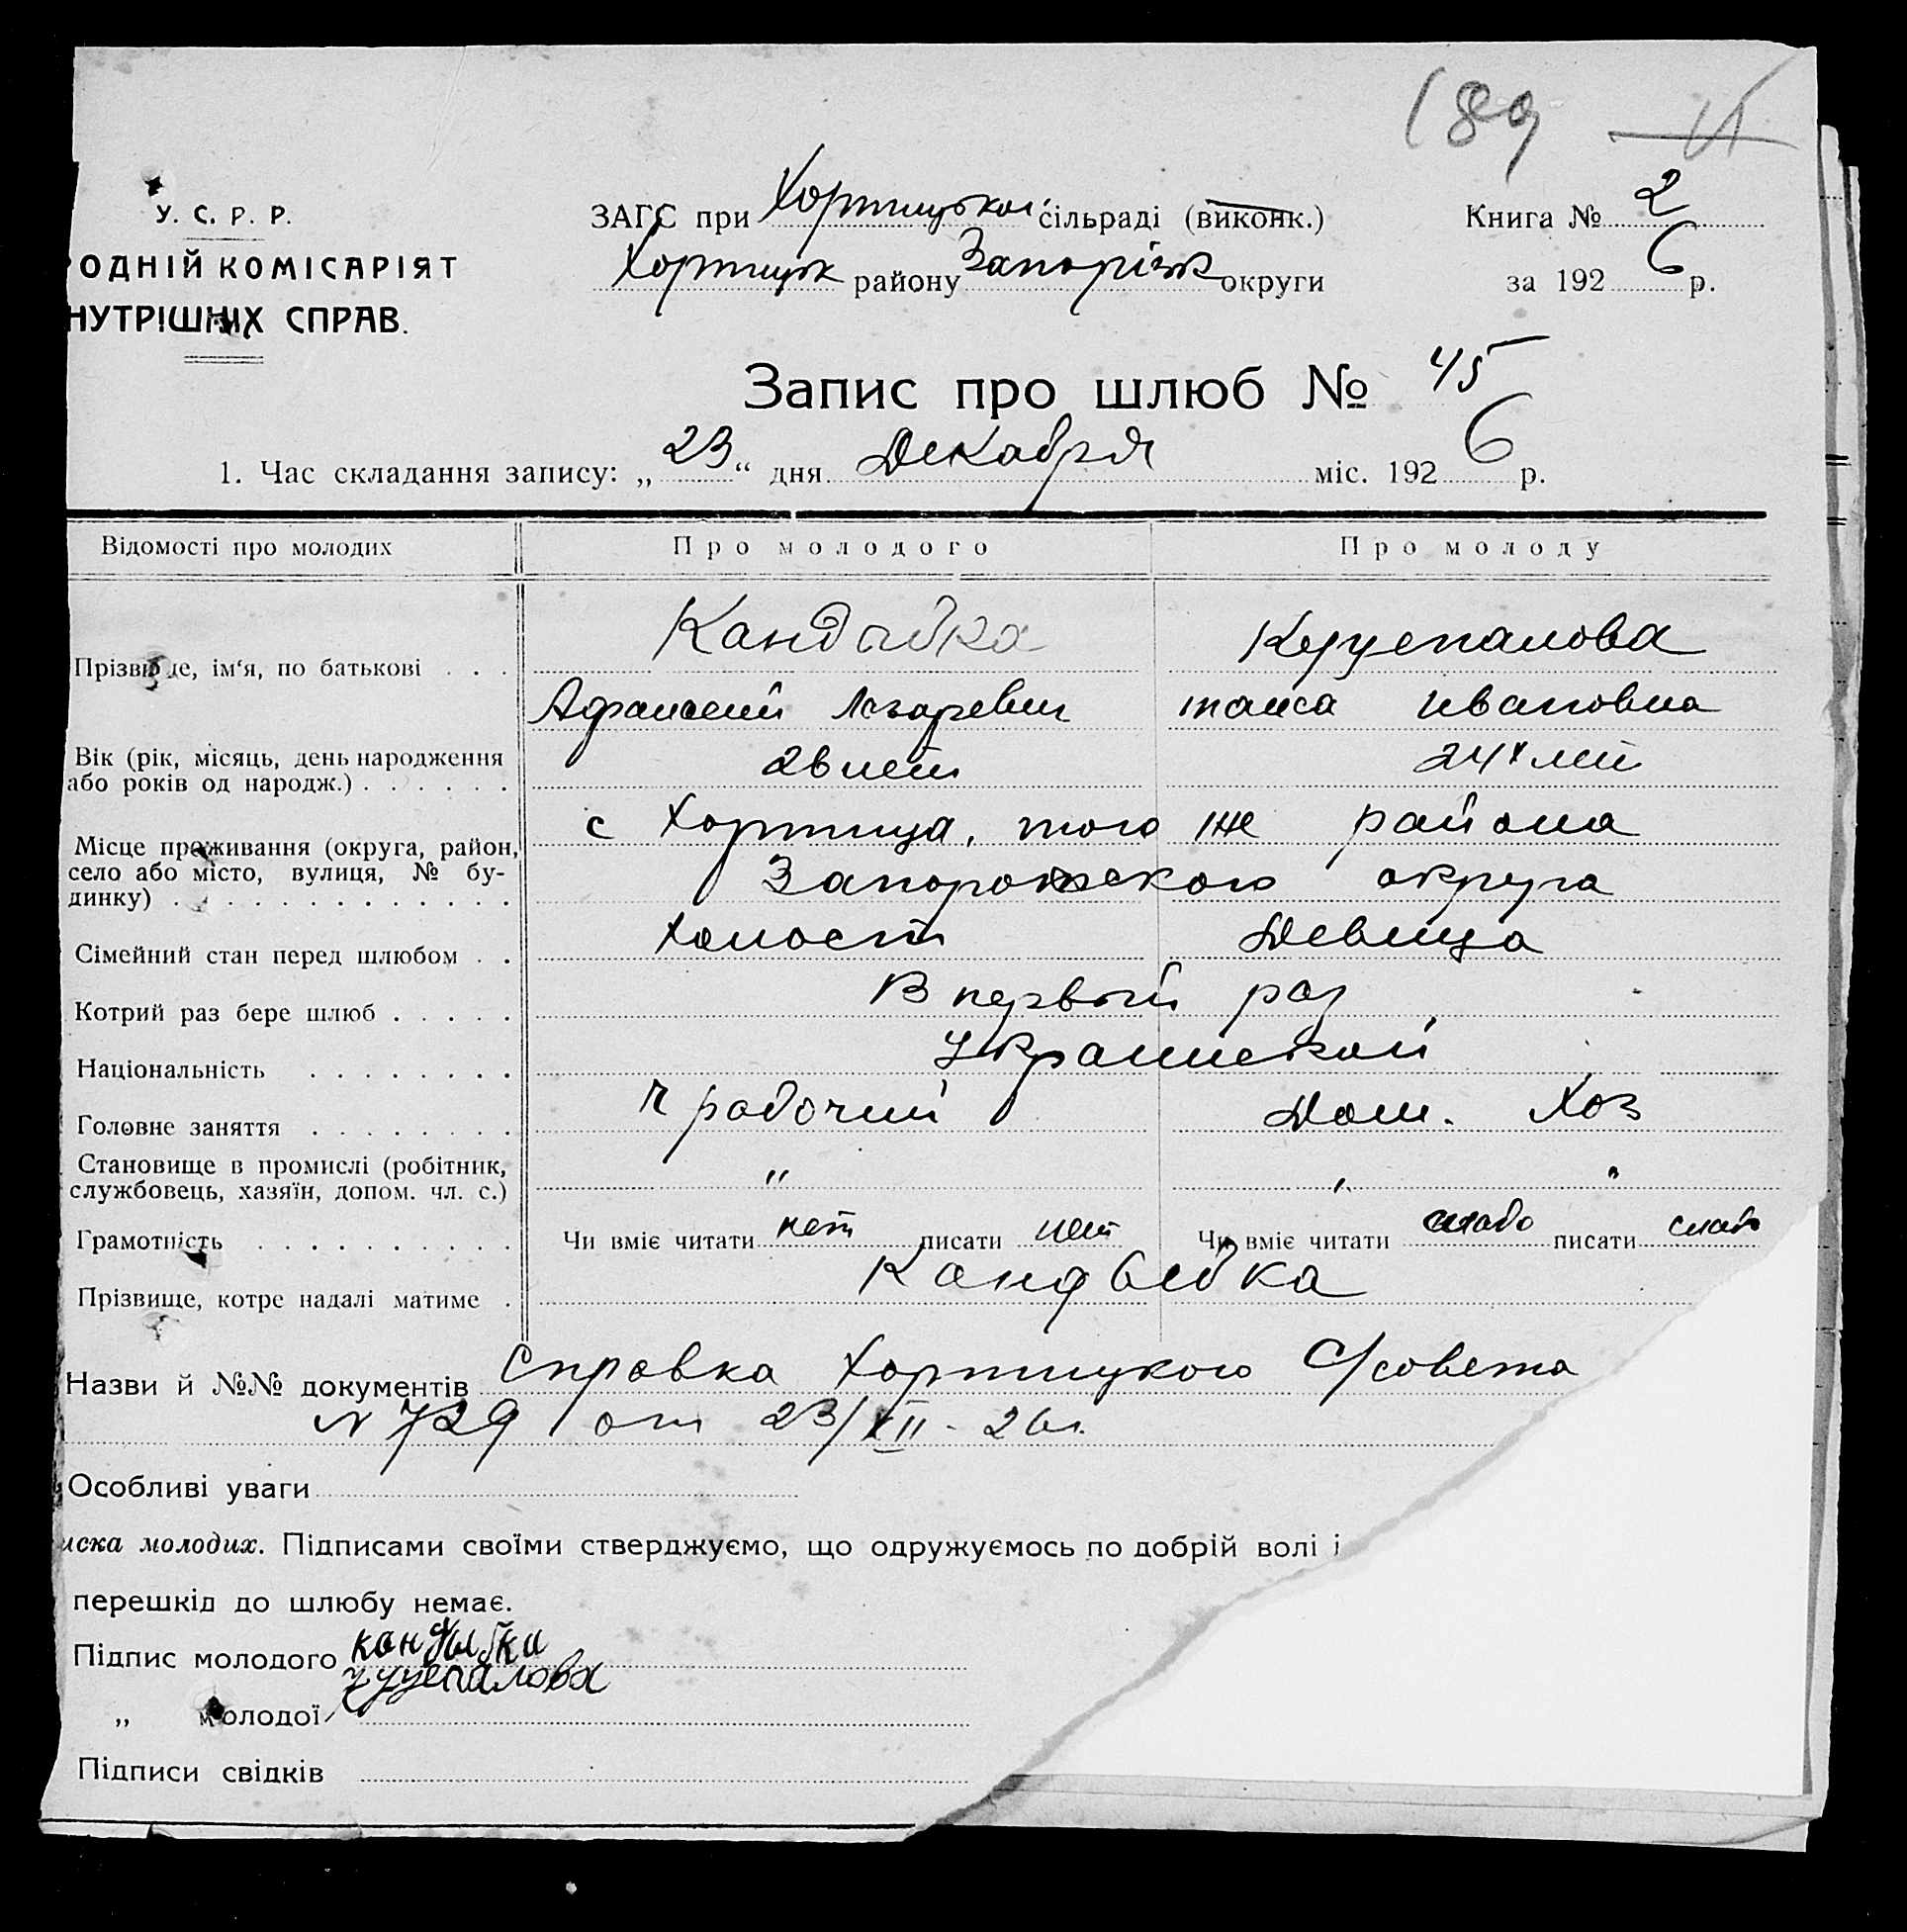 189
У. С. Р. Р.
ОДНІЙ КОМІСАРІЯТ
НУТРІШНІХ СПРАВ.
ЗАГС при Хортицькой сільраді (виконк.)
Хортицьк району Запорізьк округи
Книга № 2
за 1926 р.
Запис про шлюб № 45
1. Час складання запису: „23“ дня Декабря міс. 1926 р.
Відомості про молодих Про молодого Про молоду
Прізвище, ім‘я, по батькові . . . Кандыбка
Афанасий Лазаревич таиса Ивановна
Вік (рік, місяць, день народження
або років од народж.) . . . . . . 26 лет 24 лет
Місце проживання (округа, район,
село або місто, вулиця, № бу-
динку) . . . . . . . . . . . . . с Хортица, того же района
Запорожского округа
Сімейний стан перед шлюбом . . Холост Девица
Котрий раз бере шлюб . . . . . В первый раз
Національність . . . . . . . . Украинской
Головне заняття . . . . . . . . рабочий Дом. Хоз
Становище в промислі (робітник,
службовець, хазяїн, допом. чл. с.) " " "
Грамотність . . . . . . . . . . Чи вміє читати нет писати нет Чи вміє читати слабо писати слабо
Прізвище, котре надалі матиме . Кандыбка
Назви й №№ документів Справка Хортицкого С/совета
N 729 от 23/XII - 26 г.
Особливі уваги
иска молодих. Підписами своїми стверджуємо, що одружуємось по добрій волі і
перешкід до шлюбу немає.
Підпис молодого кандыбка
„ молодої
Підписи свідків